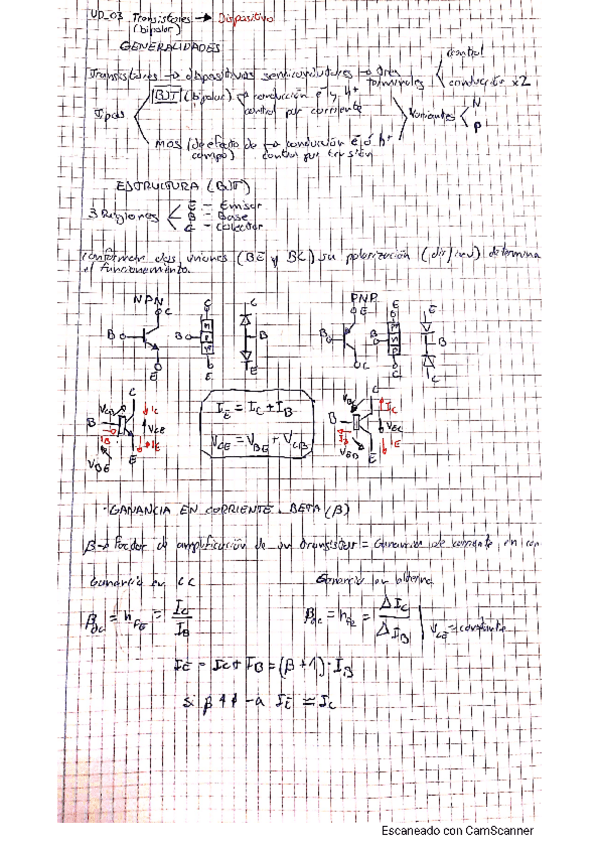 UD_03 Transistores → Dispositivo
(bipolar)
GENERALIDADES
Transistores → dispositivos semiconductores → tres terminales
control
conducción x2
Tipos
BJT (bipolar) → conducción e⁻ y h⁺
control por corriente
MOS (de efecto de campo) → conducción e⁻ ó h⁺
control por tensión
Variantes
N
P
ESTRUCTURA (BJT)
3 Regiones
E - Emisor
B - Base
C - Colector
Conforman dos uniones (BE y BC) su polarización (dir/inv) determina
el funcionamiento.
NPN
C
B
E
C
B
E
C
B
E
PNP
E
B
C
E
B
C
E
B
C
VCB
B
IB
VBE
C
IC
VCE
IE
E
IE = IC + IB
VCE = VBE + VCB
B
IB
VEB
C
IC
VEC
IE
E
· GANANCIA EN CORRIENTE. BETA (β)
β → Factor de amplificación de un transistor = Ganancia de corriente en
Ganancia en CC
Ganancia en alterna
βdc = hFE = IC / IB
= hfe = ΔIC / ΔIB | VCE = constante
IE = IC + IB = (β + 1) · IB
si β ↑↑ → IE ≃ IC
Escaneado con CamScanner